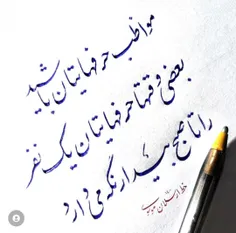 مواظب حرفهایتان باشید
بعضی وقتها حرفهایتان یک نفر
را تا صبح بیدار نگه می دارد
خط ارسلان